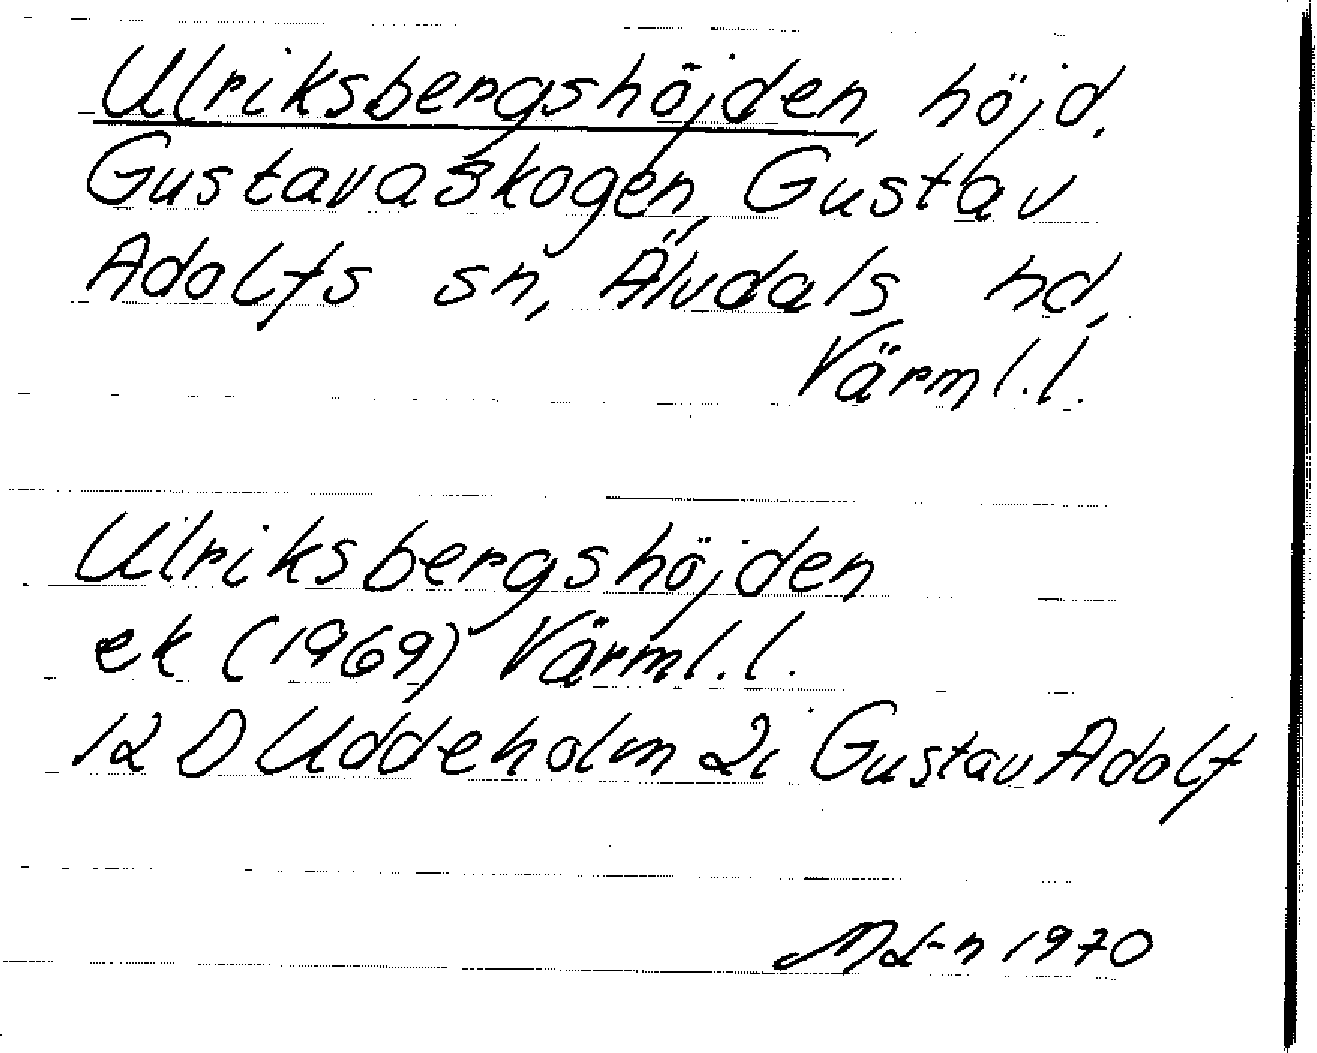 Ulriksbergshöjden, höjd,
Gustavaskogen, Gustav
Adolfs sn, Älvdals hd,
Värml.l.
Ulriksbergshöjden
ek (1969) Värml.l.
12 D Uddeholm 2i Gustav Adolf
1970